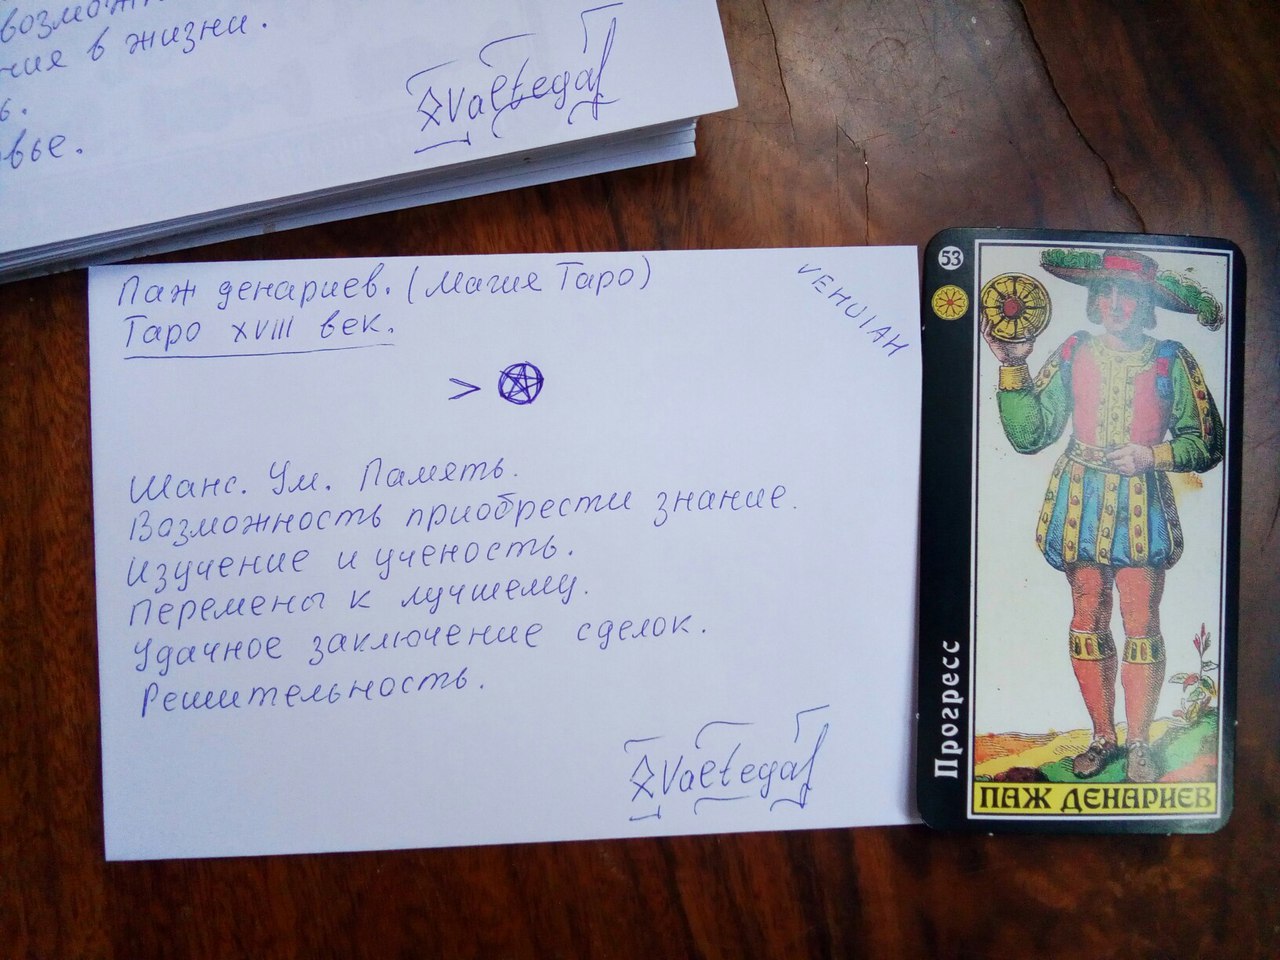 возможн
ния в жизни.
ь.
вье.
Valtegaf
Паж денариев. (Магия Таро)
Таро XVIII век.
VEHUIAH
>
Шанс. Ум. Память.
Возможность приобрести знание.
Изучение и ученость.
Перемены к лучшему.
Удачное заключение сделок.
Решительность.
Valtegaf
53
Прогресс
ПАЖ ДЕНАРИЕВ